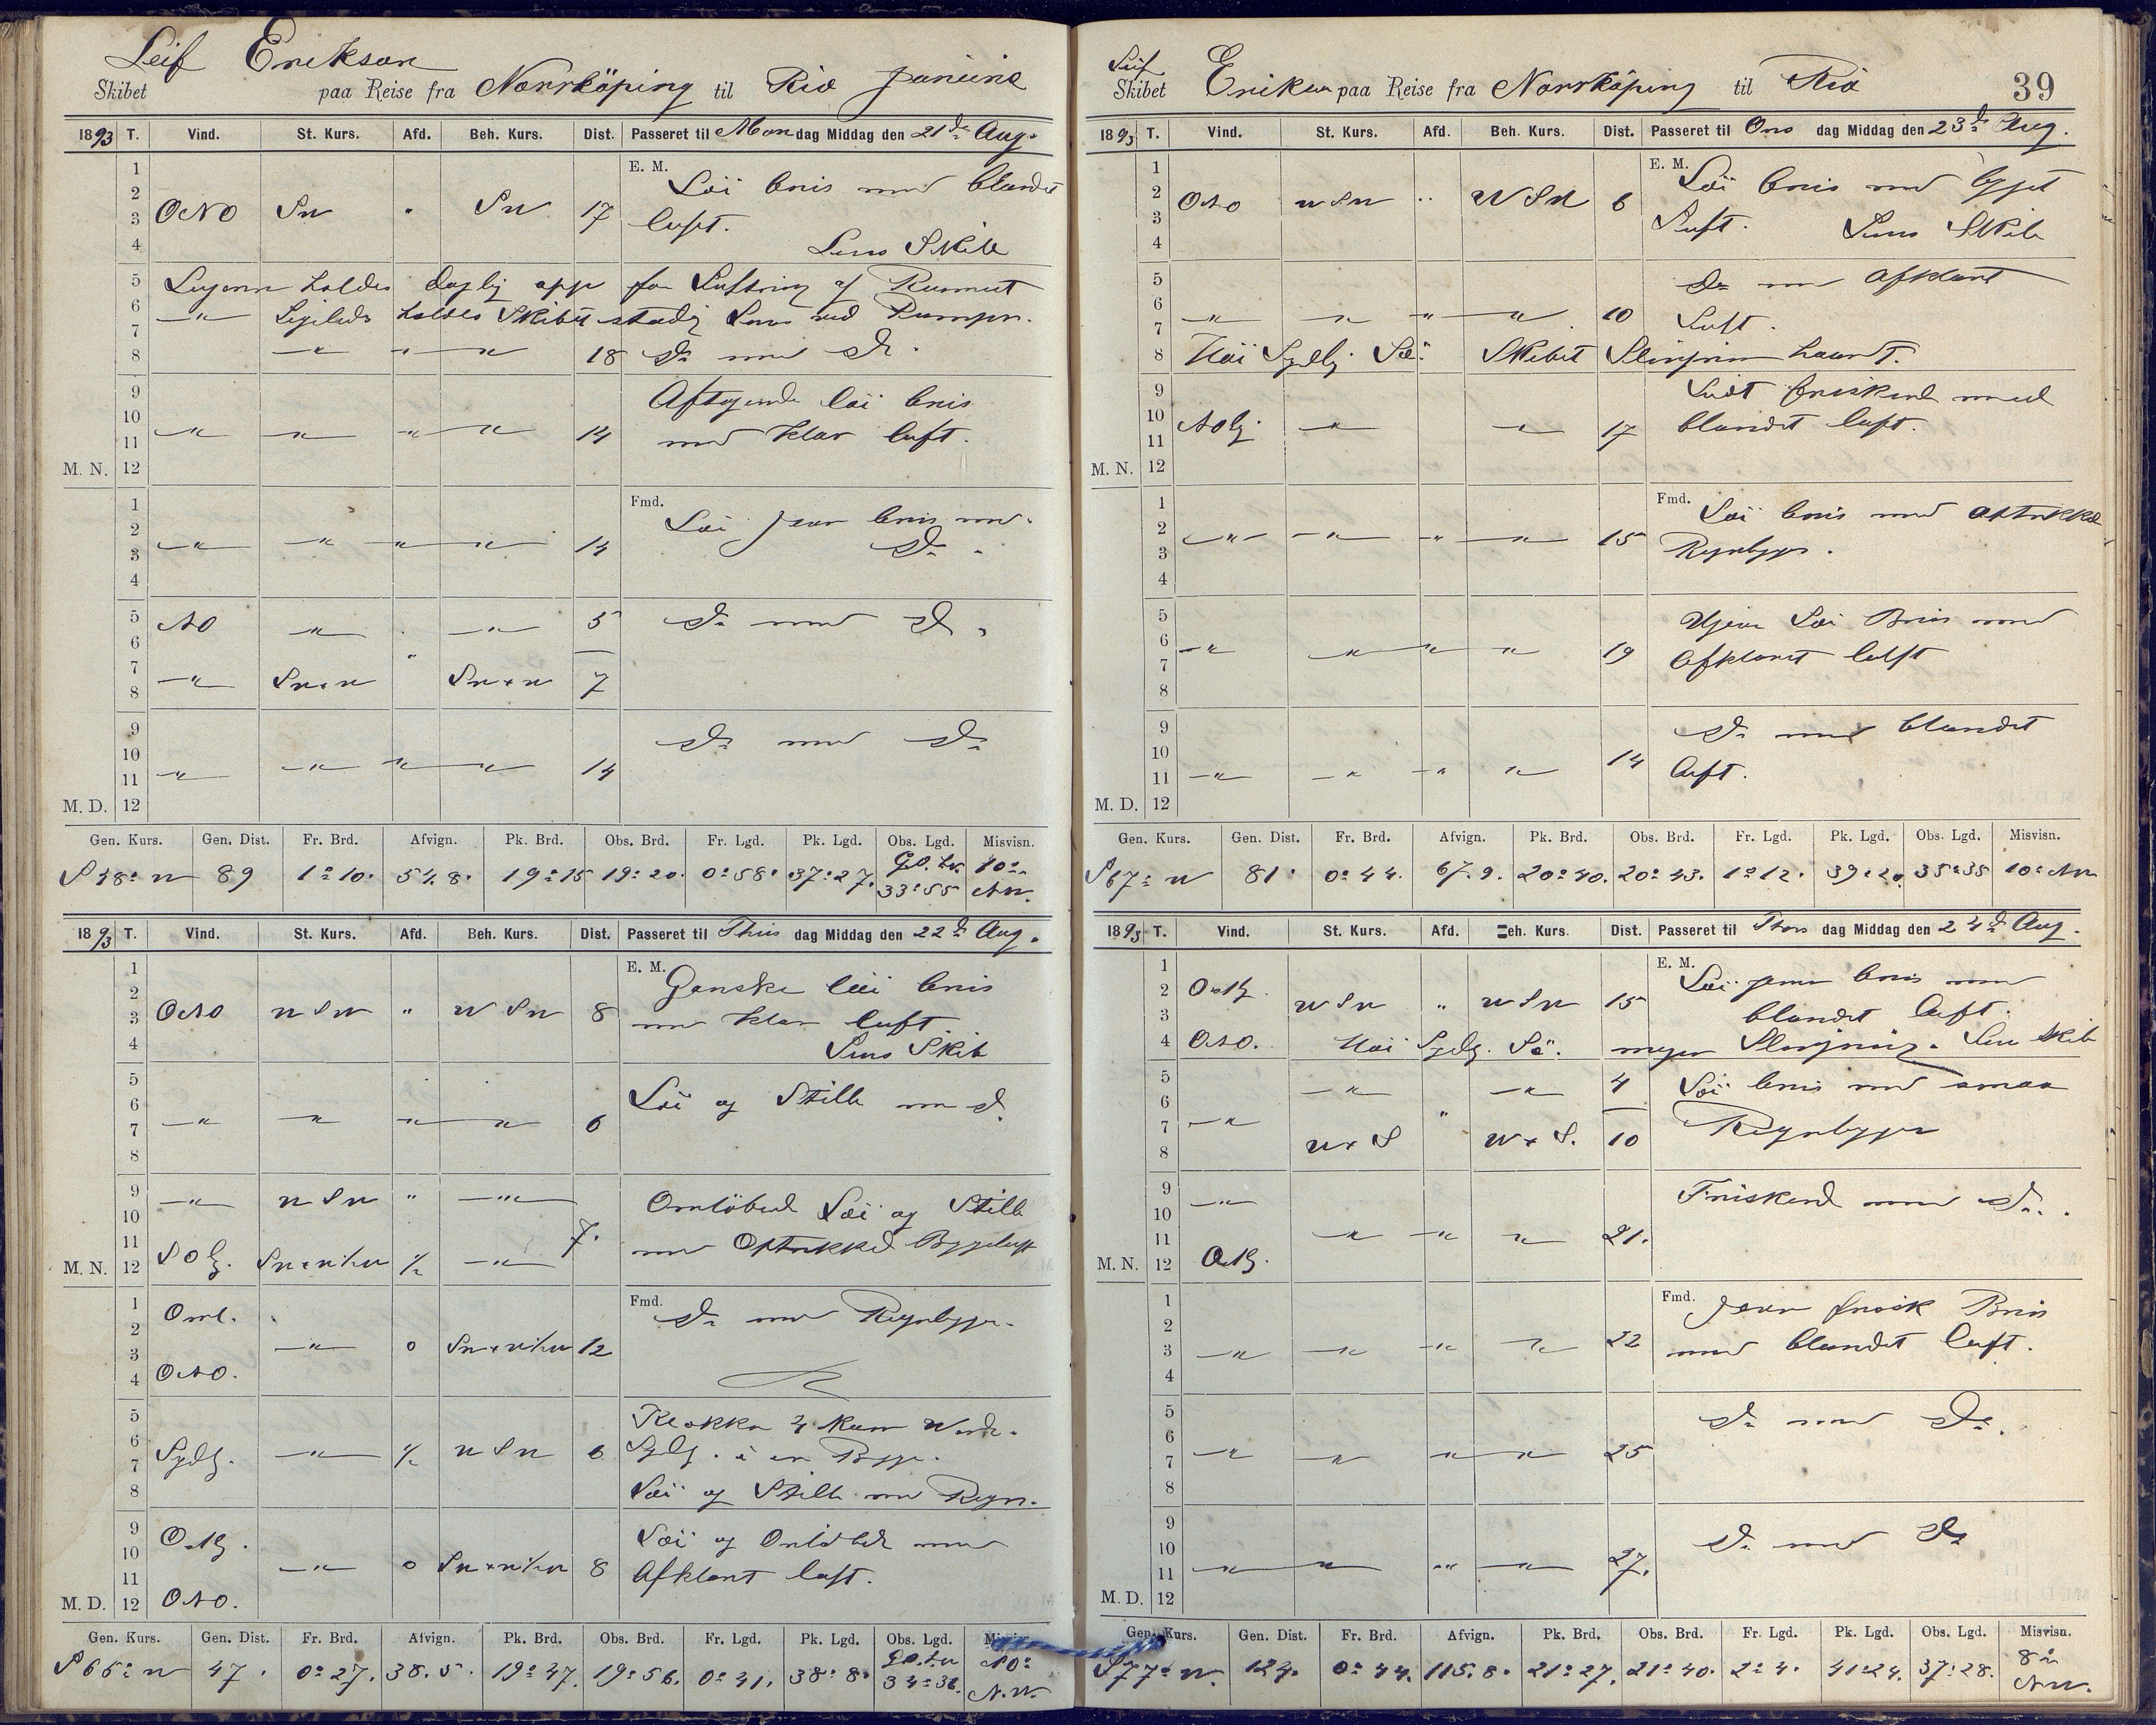 Leif Erikson
Skibet paa Reise fra Norrköping til Rio Janeiro
1893 T. Vind. St. Kurs. Afd. Beh. Kurs. Dist. Passeret til Mandag Middag den 21de Aug.
1 E. M.
2 Löi bris med blandet
3 ONO SW " SW 17 luft.
4 Lens Skib
5 Lugerne holdes daglig opp for Luftning af Rummet
6 " Ligeledes holdes Skibet stadig Lens ved Pumpen.
7
8 " " " 18 Do med Do.
9 Aftagende löi bris
10 " " " " 14 med klar luft.
11
M. N. 12
1 Fmd.
2 Löi jevn bris med
3 " " " " 14 Do
4
5 NO " " 5 Do med Do
6
7 " SWxW " SWxW 7
8
9 Do med Do
10
11 " " " " 14
M. D. 12
Gen. Kurs. Gen. Dist. Fr. Brd. Afvign. Pk. Brd. Obs. Brd. Fr. Lgd. Pk. Lgd. Obs. Lgd. Misvisn.
S 38° W 89 1° 10. 54.8. 19° 15 19° 20. 0° 58. 37° 27. 33° 55 10° NW.
1893 T. Vind. St. Kurs. Afd. Beh. Kurs. Dist. Passeret til Thirsdag Middag den 22de Aug.
1 E. M.
2 Ganske löi bris
3 ONO WSW " WSW 8 med klar luft
4 Lens Skib
5 Löi og Stille med Do
6
7 " " " " 6
8
9 " WSW " " Omlöbend Löi og Stille
10
11 7. med Optrekked Bygeluft
M. N. 12 SOlg. SWxW½W ½ "
1 Oml. Fmd. Do med Regnbyger.
2
3 " 0 SWxW½W 12
4 ONO.
5 Klokken 4 kom Wind.
6 Sydlg. " ½ WSW 6 Sydlg. i en Byge.
7
8 Löi og Stille med Regn.
9 Olg. Löi og Omlöbend med
10 " 0 SWxW½W 8 Afklaret luft.
11
M. D. 12 ONO.
Gen. Kurs. Gen. Dist. Fr. Brd. Afvign. Pk. Brd. Obs. Brd. Fr. Lgd. Pk. Lgd. Obs. Lgd.
S 55° W 47. 0° 27. 38.5. 19° 47. 19° 56. 0° 41. 38° 8. 34° 36. 10° N.W.
Leif
Skibet Erikson paa Reise fra Norrköping til Rio 39
1893 T. Vind. St. Kurs. Afd. Beh. Kurs. Dist. Passeret til Onsdag Middag den 23de Aug.
1 E. M.
2 Löi bris med byget
3 ONO WSW " WSW 6 Luft. Lens Skib
4
5 Do med Afklaret
6
7 " " " " 10 Luft.
8 Höi Sydlig Sö. Skibet Slingrim haardt.
9 Lidt friskend med
10 NOlg. " " 17 blandet luft.
11
M. N. 12
1 Fmd.
2 Löi bris med Optrekked
3 " " " " 15 Regnbyger.
4
5 Ujevn Löi Bris med
6
7 " " " " 19 Afklaret luft
8
9 Do med blandet
10
11 " " " " 14 luft.
M. D. 12
Gen. Kurs. Gen. Dist. Fr. Brd. Afvign. Pk. Brd. Obs. Brd. Fr. Lgd. Pk. Lgd. Obs. Lgd. Misvisn.
S 67° W 81. 0° 44. 67.9. 20° 40. 20° 43. 1° 12. 39° 20. 35° 38 10° NW
1893 T. Vind. St. Kurs. Afd. Beh. Kurs. Dist. Passeret til Thorsdag Middag den 24de Aug.
1 E. M.
2 Olg. Löi jevn bris med
3 WSW " WSW 15 blandet luft.
4 ONO. Höi Sydlg. Sö. megen Slingring. Lens Skib
5 " " 4 Löi bris med smaa
6
7 " WxS " WxS. 10 Regnbyger
8
9 " Friskend med Do.
10
11 " " " 21.
M. N. 12 Olg.
1 Fmd. Jevn frisk Bris
2
3 " " " " 22 med blandet luft.
4
5 Do med Do.
6
7 " " " " 25
8
9 Do med Do
10
11 " " " " 27.
M. D. 12
Gen. Kurs. Gen. Dist. Fr. Brd. Afvign. Pk. Brd. Obs. Brd. Fr. Lgd. Pk. Lgd. Obs. Lgd. Misvisn.
S 77° W. 124. 0° 44. 115.8. 21° 27. 21° 40. 2° 4. 41° 24. 37° 28. 8° NW.